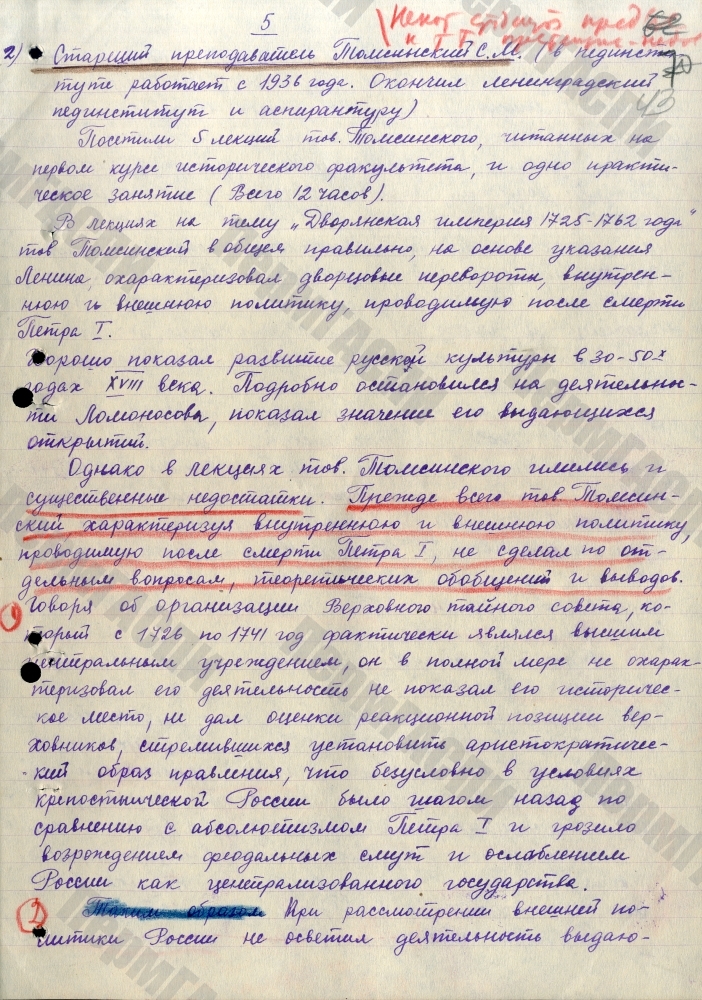 5
2) Старший преподаватель Томсинский С.М. (в пединсти-
туте работает с 1936 года. Окончил Ленинградский
пединститут и аспирантуру)
43
Посетили 5 лекций тов. Томсинского, читанных на
первом курсе исторического факультета, и одно практи-
ческое занятие (Всего 12 часов).
В лекциях на тему „Дворянская империя 1725-1762 года"
тов Томсинский в общем правильно, на основе указания
Ленина, охарактеризовал дворцовые перевороты, внутрен-
нюю и внешнюю политику, проводимую после смерти
Петра I.
Хорошо показал развитие русской культуры в 30-50х
годах XVIII века. Подробно остановился на деятельнос-
ти Ломоносова, показал значение его выдающихся
открытий.
Однако в лекциях тов. Томсинского имелись и
существенные недостатки. Прежде всего тов Томсин-
ский характеризуя внутреннюю и внешнюю политику,
проводимую после смерти Петра I, не сделал по от-
дельным вопросам, теоретических обобщений и выводов.
1 Говоря об организации Верховного тайного совета, ко-
торый с 1726 по 1741 год фактически являлся высшим
центральным учреждением, он в полной мере не охарак-
теризовал его деятельность не показал его историчес-
кое место, не дал оценки реакционной позиции вер-
ховников, стремившихся установить аристократичес-
кий образ правления, что безусловно в условиях
крепостнической России было шагом назад по
сравнению с абсолютизмом Петра I и грозило
возрождением феодальных смут и ослаблением
России как централизованного государства.
2 Таким образом При рассмотрении внешней по-
литики России не осветил деятельность выдаю-